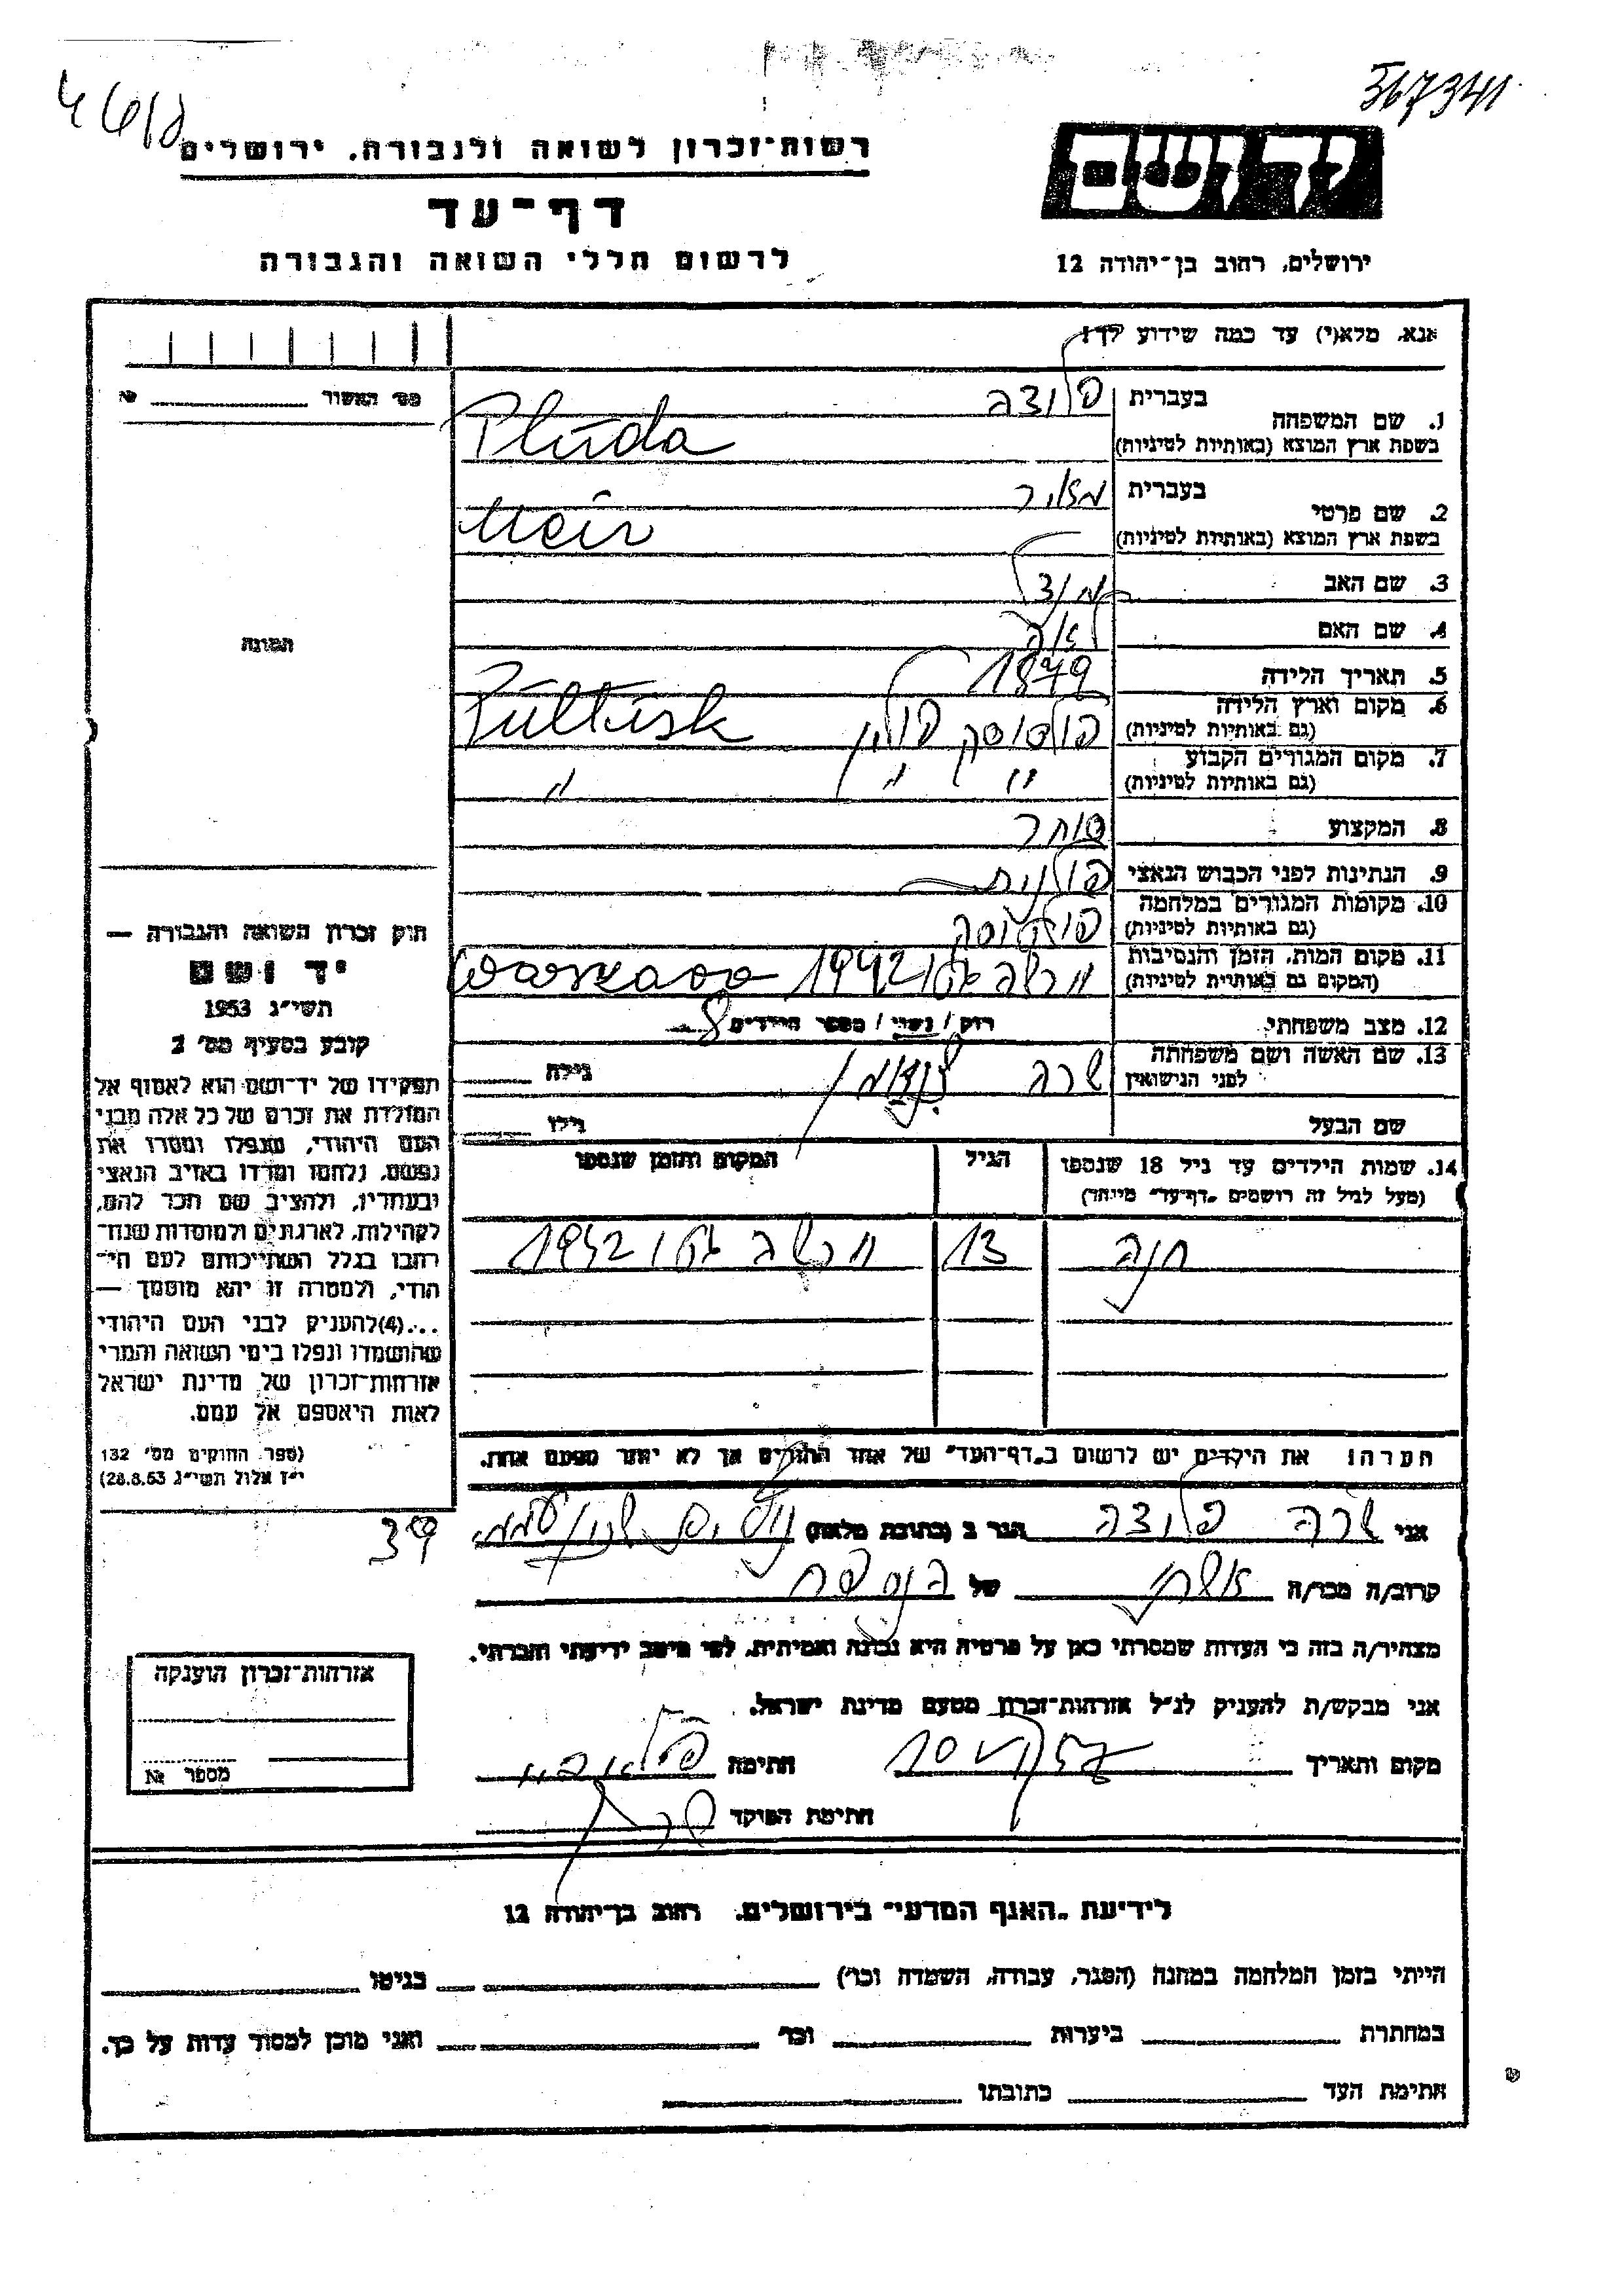 367341
רשות־זכרון לשואה ולגבורה. ירושלים
דף־עד
לרשום חללי השואה והגבורה
ירושלים, רחוב בן־יהודה 12
אנא, מלא(י) עד כמה שידוע לך!
מס' האשור №
1. שם המשפחה
בעברית פלודה
בשפת ארץ המוצא (באותיות לטיניות) Pluda
2. שם פרטי
בעברית מאיר
בשפת ארץ המוצא (באותיות לטיניות) Meir
3. שם האב
4. שם האם לאה
5. תאריך הלידה 1879
6. מקום וארץ הלידה פולטוסק פולין Pultusk
(גם באותיות לטיניות)
7. מקום המגורים הקבוע " " "
(גם באותיות לטיניות)
8. המקצוע סוחר
9. הנתינות לפני הכבוש הנאצי פולנית
10. מקומות המגורים במלחמה
(גם באותיות לטיניות)
11. מקום המות, הזמן והנסיבות ורשה גטו 1942
(המקום גם באותיות לטיניות)
12. מצב משפחתי רווק / נשוי / מספר הילדים 8
13. שם האשה ושם משפחתה לפני הנישואין שרה גילה
שם הבעל גילו
14. שמות הילדים עד גיל 18 שנספו הגיל המקום והזמן שנספו
(מעל לגיל זה רושמים "דף־עד" מיוחד)
חנה 13 ורשה גטו 1942
הערה: את הילדים יש לרשום ב"דף־העד" של אחד ההורים אך לא יותר מפעם אחת.
אני שרה פלודה הגר ב (כתובת מלאה)
קרוב/ה מכר/ה אשתו של הנספה
מצהיר/ה בזה כי העדות שמסרתי כאן על פרטיה היא נכונה ואמיתית, לפי מיטב ידיעתי והכרתי.
אני מבקש/ת להעניק לנ"ל אזרחות־זכרון מטעם מדינת ישראל.
מקום ותאריך חתימה
חתימת הפוקד
תמונה
חוק זכרון השואה והגבורה —
יד ושם
תשי"ג 1953
קובע בסעיף מס' 2
תפקידו של יד־ושם הוא לאסוף אל
המולדת את זכרם של כל אלה מבני
העם היהודי, שנפלו ומסרו את
נפשם, נלחמו ומרדו באויב הנאצי
ובעוזריו, ולהציב שם וזכר להם,
לקהילות, לארגונים ולמוסדות שנח־
רבו בגלל השתייכותם לעם הי־
הודי, ולמטרה זו יהא מוסמך —
...(4) להעניק לבני העם היהודי
שהושמדו ונפלו בימי השואה והמרי
אזרחות־זכרון של מדינת ישראל
לאות היאספם אל עמם.
(ספר החוקים מס' 132
י"ז אלול תשי"ג 28.8.53)
אזרחות־זכרון הוענקה
מספר №
לידיעת "האגף המדעי" בירושלים, רחוב בן־יהודה 12
הייתי בזמן המלחמה במחנה (הסגר, עבודה, השמדה וכו') בגיטו
במחתרת ביערות וכו' ואני מוכן למסור עדות על כך.
חתימת העד כתובתו